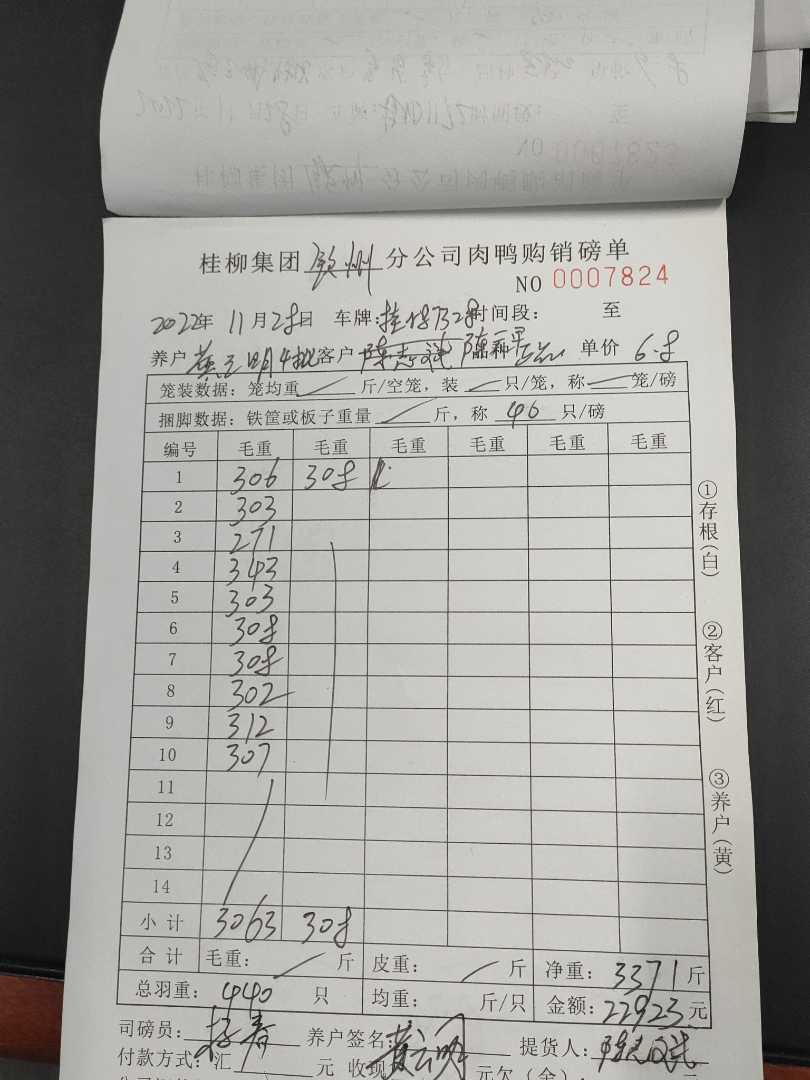 桂柳集团 钦州 分公司肉鸭购销磅单
NO 0007824
2022年 11月28日 车牌: 时间段: 至
养户 黄云明4批 客户 陈志诚 品种 单价 6.8
笼装数据：笼均重 / 斤/空笼，装 / 只/笼，称 / 笼/磅
捆脚数据：铁筐或板子重量 / 斤，称 46 只/磅
编号 毛重 毛重 毛重 毛重 毛重 毛重
1 306 308
2 303
3 271
4 343
5 303
6 308
7 308
8 302
9 312
10 307
11
12
13
14
小计 3063 308
合计 毛重： / 斤 皮重： / 斤 净重：3371斤
总羽重：440 只 均重： 斤/只 金额：22923元
司磅员： 养户签名：黄云明 提货人：陈志诚
付款方式：汇 元 收现 元欠（余）： 元
①存根（白）
②客户（红）
③养户（黄）